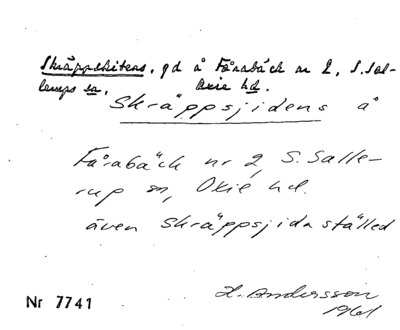 Skräppskitens, gd å Fårabäck nr 2, S. Sal-
lerups sn, Oxie hd.
Skräppsjidens å
Fårabäck nr 2, S. Salle-
rup sn, Oxie hd.
även Skräppsjidastället
H. Andersson
1961
Nr 7741